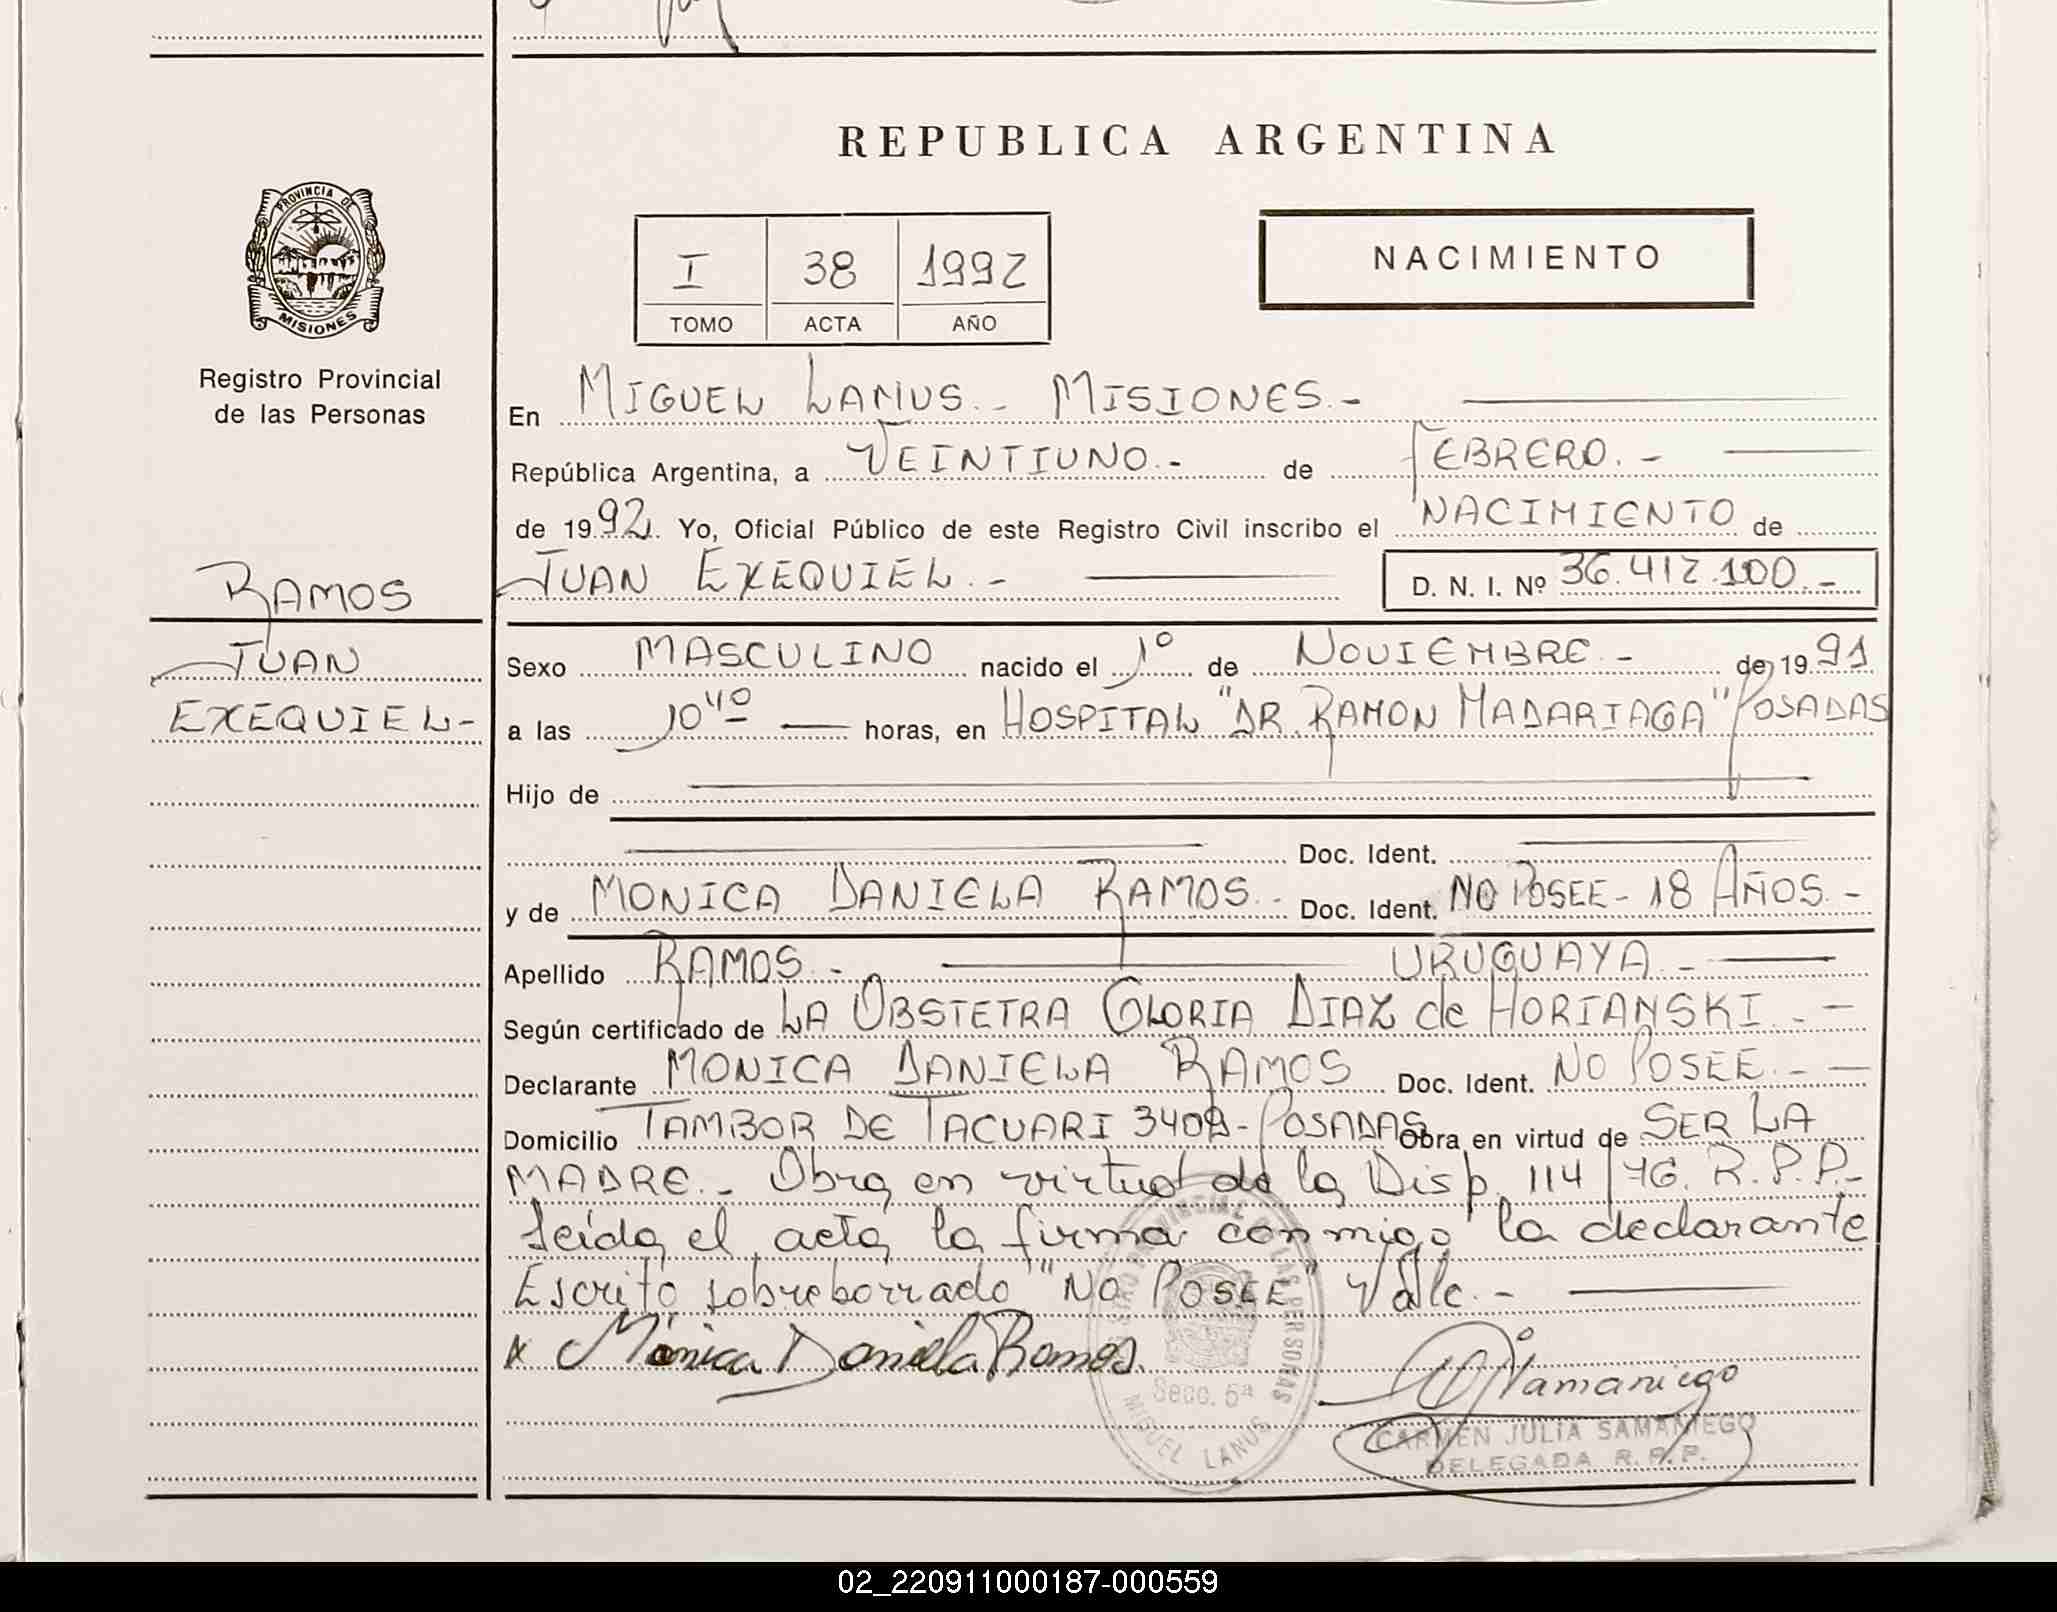 REPUBLICA ARGENTINA
PROVINCIA DE
MISIONES
Registro Provincial
de las Personas
I 38 1992
TOMO ACTA AÑO
NACIMIENTO
En MIGUEL LANUS.- MISIONES.-
República Argentina, a VEINTIUNO.- de FEBRERO.-
de 1992. Yo, Oficial Público de este Registro Civil inscribo el NACIMIENTO de
JUAN EXEQUIEL.- D. N. I. Nº 36.412.100.-
RAMOS
JUAN
EXEQUIEL-
Sexo MASCULINO nacido el 1º de NOVIEMBRE.- de 1991
a las 10⁴⁰ horas, en HOSPITAL "DR. RAMON MADARIAGA" POSADAS
Hijo de
Doc. Ident.
y de MONICA DANIELA RAMOS.- Doc. Ident. NO POSEE- 18 AÑOS.-
Apellido RAMOS.- URUGUAYA.-
Según certificado de LA OBSTETRA GLORIA DIAZ de HORIANSKI.-
Declarante MONICA DANIELA RAMOS Doc. Ident. NO POSEE.-
Domicilio TAMBOR DE TACUARI - POSADAS Obra en virtud de SER LA
MADRE.- Obra en virtud de la Disp. 114/76. R.P.P.-
Leída el acta la firma conmigo la declarante
Escrito sobreborrado "NO POSEE" Vale.-
x Mónica Daniela Ramos.
Samaniego
REGISTRO PROVINCIAL DE LAS PERSONAS
Secc. 5ª
MIGUEL LANUS
CARMEN JULIA SAMANIEGO
DELEGADA R.P.P.
02_220911000187-000559